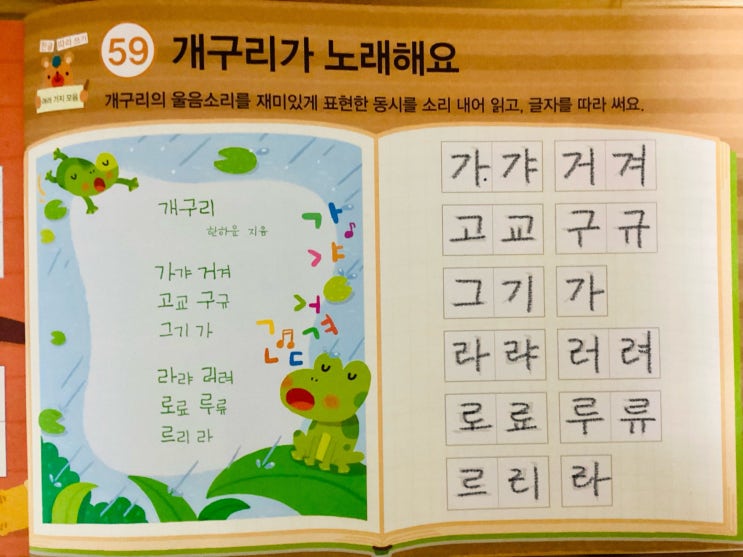 한글 따라 쓰기
여러 가지 모음
59 개구리가 노래해요
개구리의 울음소리를 재미있게 표현한 동시를 소리 내어 읽고, 글자를 따라 써요.
개구리
한하운 지음
가갸 거겨
고교 구규
그기 가
라랴 러려
로료 루류
르리 라
가
갸
거
겨
가 갸 거 겨
고 교 구 규
그 기 가
라 랴 러 려
로 료 루 류
르 리 라